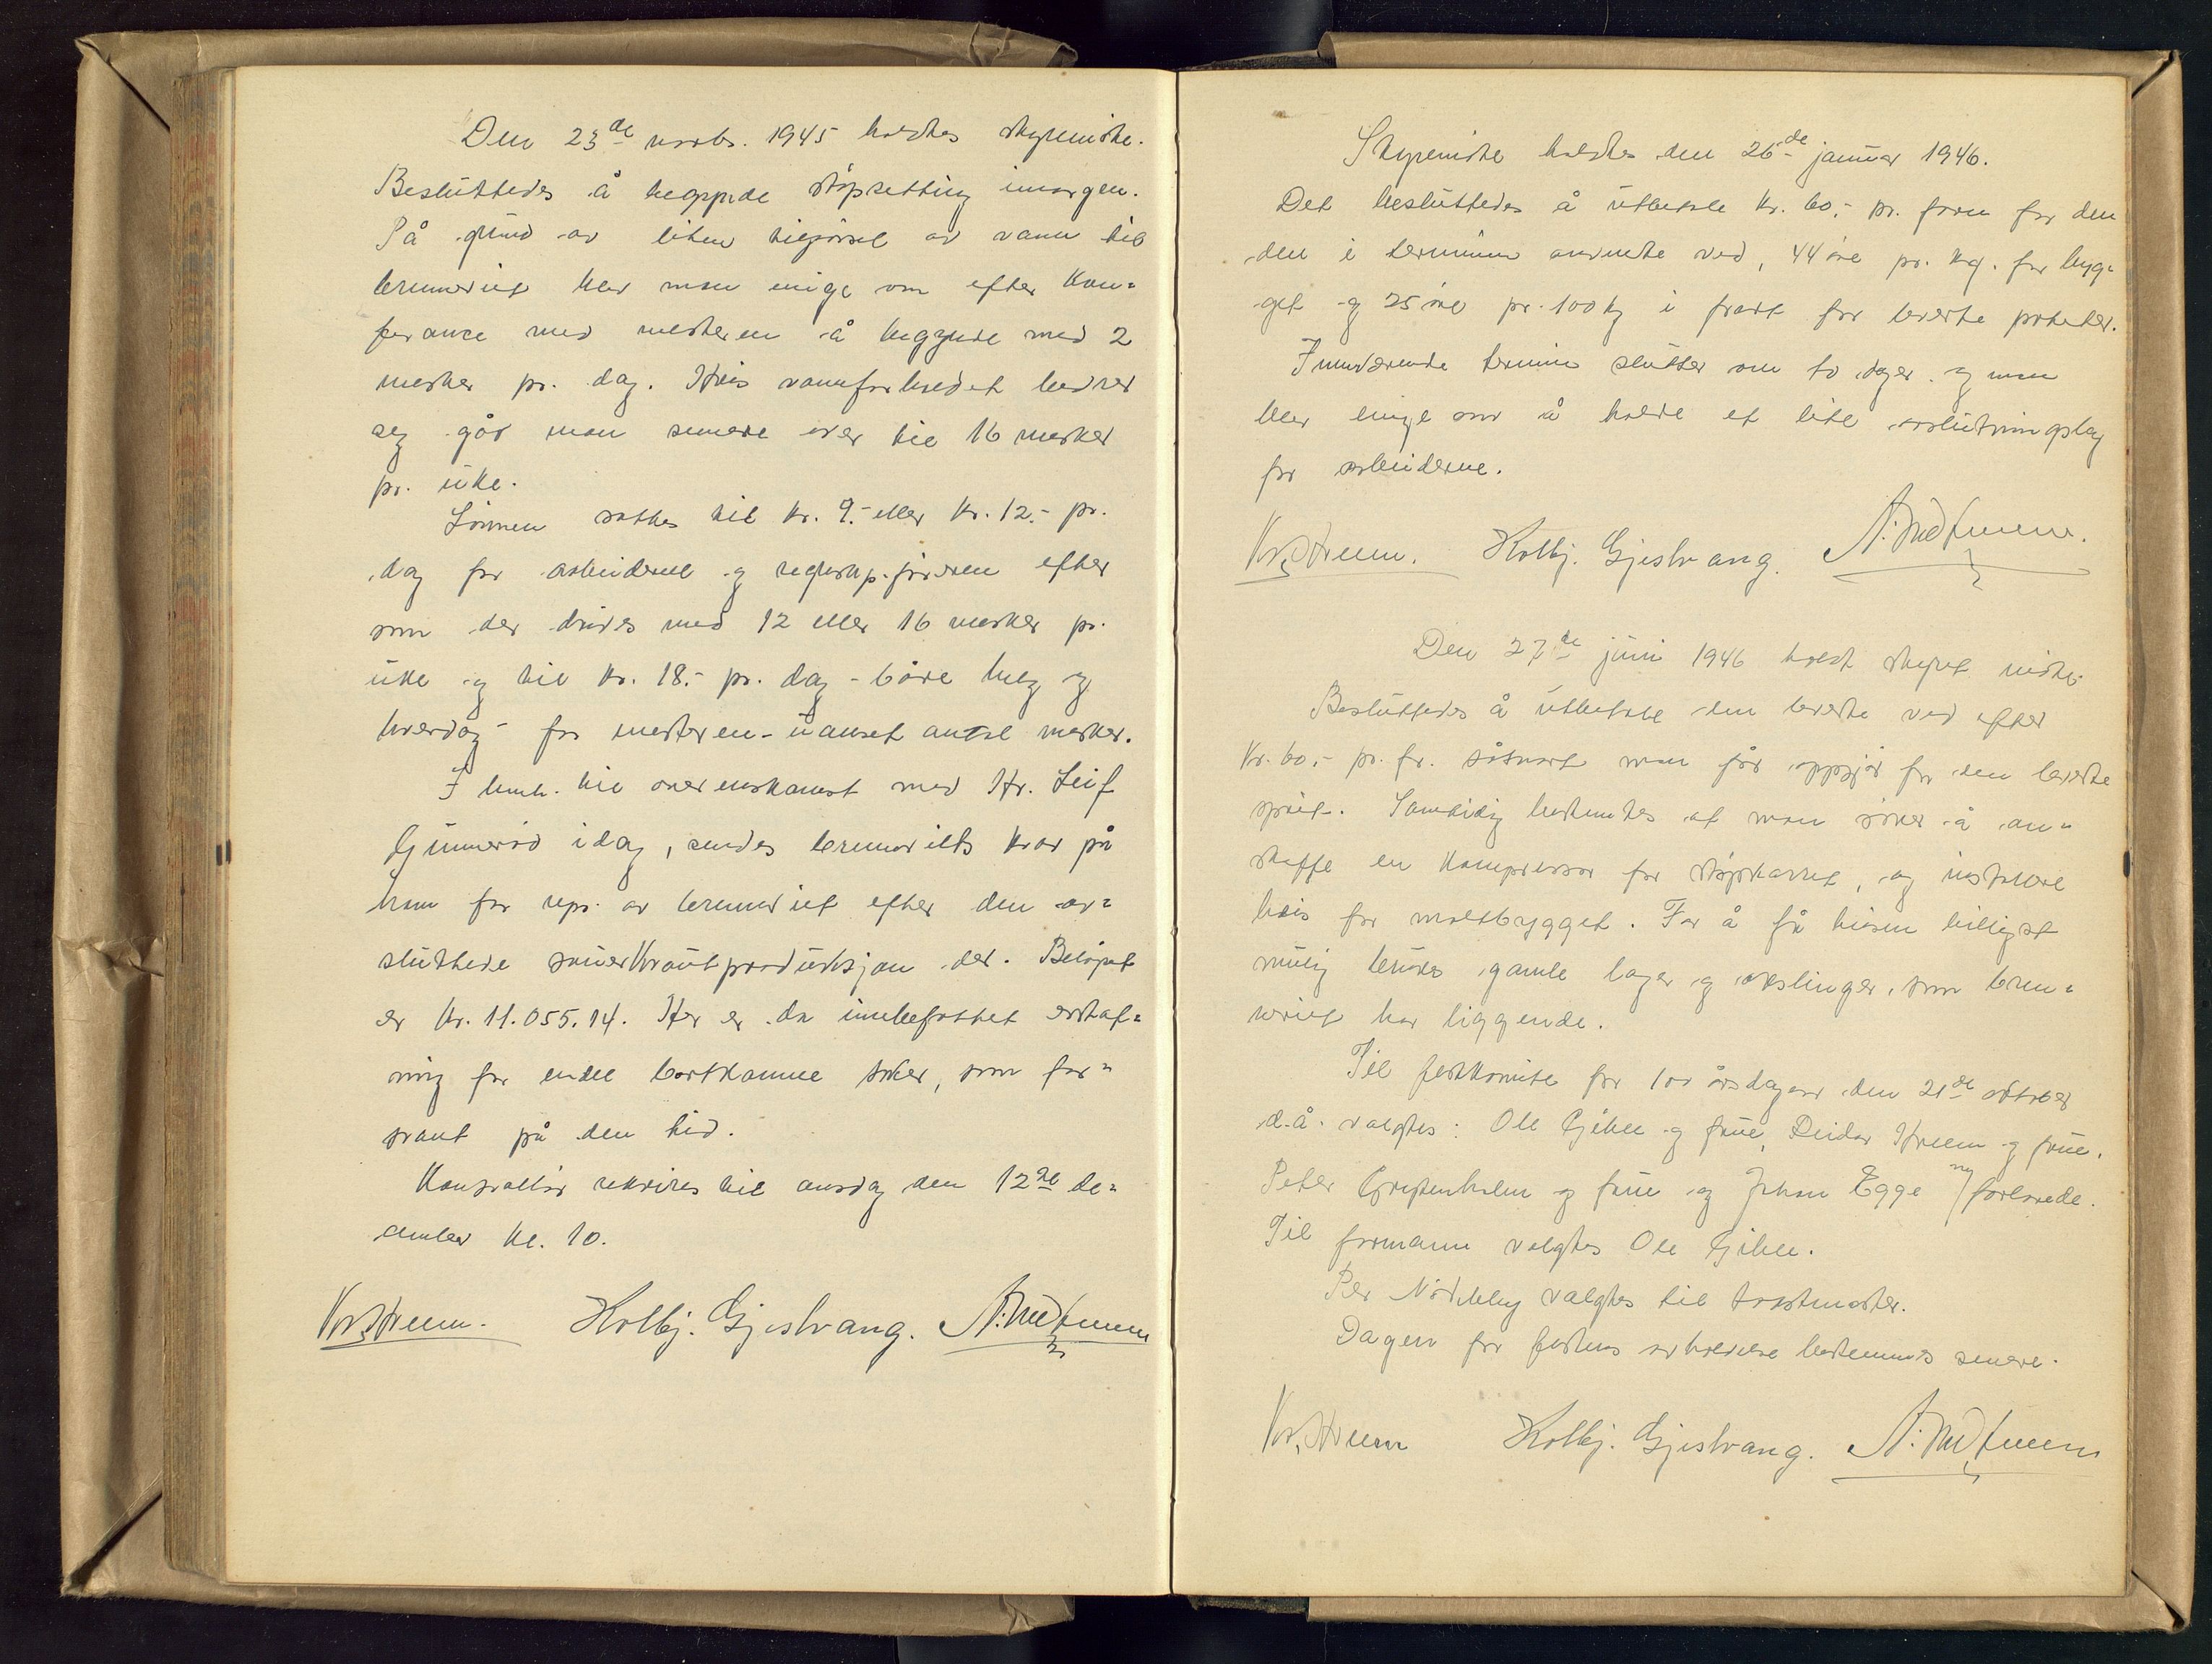 Den 23de novbr. 1945 holdtes styremöte.
Besluttedes å begynde støpsetting imorgen.
På grund av liten tilgörsel av vann til
brenneriet blev man enige om efter kon=
feranse med mesteren å begynde med 2
mesker pr. dag. Hvis vannforholdet bedrer
seg går man senere over til 16 mesker
pr. uke.
Lönnen sattes til kr. 9.- eller kr. 12.- pr.
dag for arbeiderne og regnskp.föreren efter
som der drives med 12 eller 16 mesker pr.
uke og til kr. 18.- pr. dag - både helg og
hverdag - for mesteren - uanset antal mesker.
I henh. til overenskomst med Hr. Leif
Gjunneröd idag, sendes brenneriets krav på
ham for rep. av brenneriet efter den av=
sluttede sauerkrautproduksjon der. Belöpet
er kr. 11.055.14. Her er da innebefattet erstat=
ning for endel bortkomne saker, som for=
svant på den tid.
Kontrollör rekvires til onsdag den 12te de=
cember kl. 10.
Kr. Hveem. Kolbj. Gjestvang. A. Nedtmenn
Styremöte holdtes den 26de januar 1946.
Det besluttedes å utbetale kr. 60,- pr. favn for den
den i terminen anvendte ved, 44 öre pr. kg. for byg=
get og 25 öre pr. 100 kg i frakt for leverte poteter.
Inneværende termin slutter om to dager og man
blev enige om å holde et lite avslutningslag
for arbeiderne.
Kr. Hveem. Kolbj. Gjestvang. A. Nedtmenn.
Den 27de juni 1946 holdt styret möte.
Besluttedes å utbetale den leverte ved efter
kr. 60,- pr. fv. såsnart man får oppgjör for den leverte
sprit. Samtidig bestemtes at man söker å an=
skaffe en kompressor for støpkarret, og installere
heis for maltbygget. For å få heisen billigst
mulig brukes gamle lager og akslinger, som bren=
neriet har liggende.
Til festkomite for 100 årsdagen den 21de oktober
d.å. valgtes: Ole Gjihle og frue, Reidar Hveem og frue,
Peter Gryfenholm og frue og Johan Egge og forlovede.
Til formann valgtes Ole Gjihle.
Per Nordeby valgtes til toastmaster.
Dagen for festens avholdelse bestemmes senere.
Kr. Hveem Kolbj. Gjestvang. A. Nedtmenn